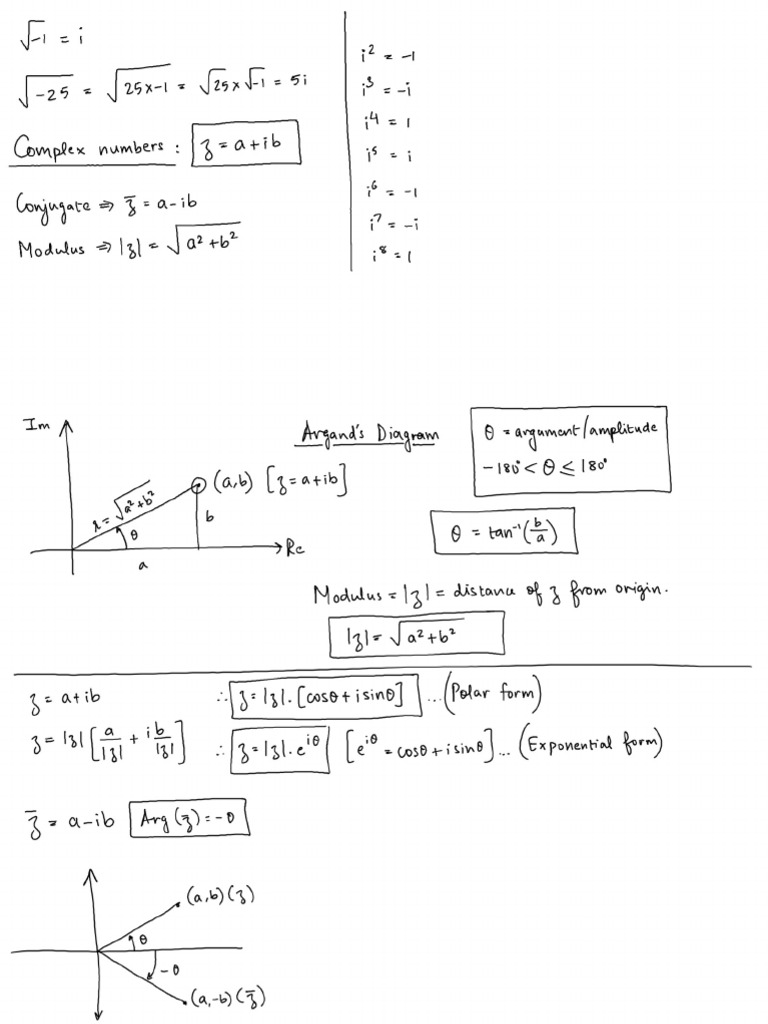 √-1 = i
√-25 = √25×-1 = √25×√-1 = 5i
Complex numbers : z = a+ib
Conjugate ⇒ z̄ = a-ib
Modulus ⇒ |z| = √a²+b²
i² = -1
i³ = -i
i⁴ = 1
i⁵ = i
i⁶ = -1
i⁷ = -i
i⁸ = 1
Argand's Diagram
θ = argument/amplitude
-180° < θ ≤ 180°
Im
r = √a²+b²
(a,b) [z=a+ib]
θ
b
a
Re
θ = tan⁻¹(b/a)
Modulus = |z| = distance of z from origin.
|z| = √a²+b²
z = a+ib ∴ z = |z|.[cosθ+isinθ] ...(Polar form)
z = |z|[a/|z| + ib/|z|] ∴ z = |z|.e^iθ [e^iθ = cosθ+isinθ]... (Exponential form)
z̄ = a-ib Arg(z̄) = -θ
(a,b)(z)
θ
-θ
(a,-b)(z̄)